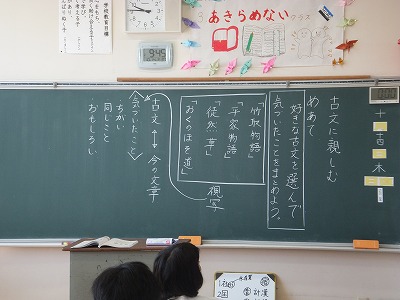 あきらめない
クラス
学校教育目標
古文に親しむ
めあて
好きな古文を選んで
気づいたことをまとめよう。
「竹取物語」
「平家物語」
「徒然草」
「おくのほそ道」
視写
古文 ↔ 今の文章
〈気づいたこと〉
ちがい
同じこと
おもしろい
十
木